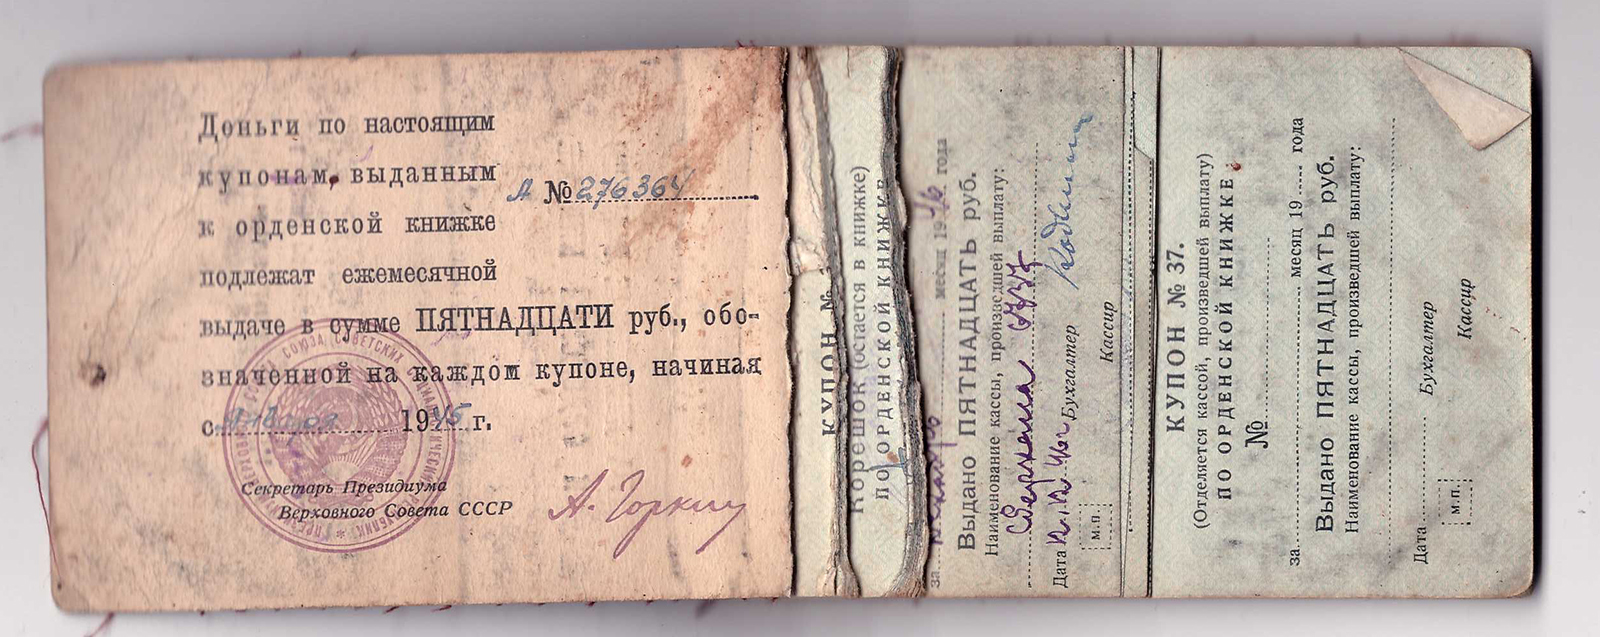 Деньги по настоящим
купонам, выданным
А № 276364
к орденской книжке
подлежат ежемесячной
выдаче в сумме ПЯТНАДЦАТИ руб., обо-
значенной на каждом купоне, начиная
с Января 1945 г.
Секретарь Президиума
Верховного Совета СССР
А. Горкин
КУПОН №
Корешок (остается в книжке)
ПО ОРДЕНСКОЙ КНИЖКЕ
за месяц 1946 года
Выдано ПЯТНАДЦАТЬ руб.
Наименование кассы, произведшей выплату:
Дата
м.п.
Бухгалтер
Кассир
КУПОН № 37.
(Отделяется кассой, произведшей выплату)
ПО ОРДЕНСКОЙ КНИЖКЕ
№
за месяц 19 года
Выдано ПЯТНАДЦАТЬ руб.
Наименование кассы, произведшей выплату:
Дата
м.п.
Бухгалтер
Кассир